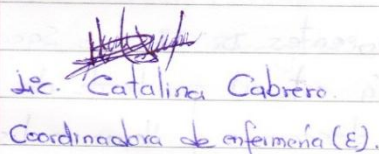 Lic. Catalina Cabrero.
Coordinadora de enfermería (E).